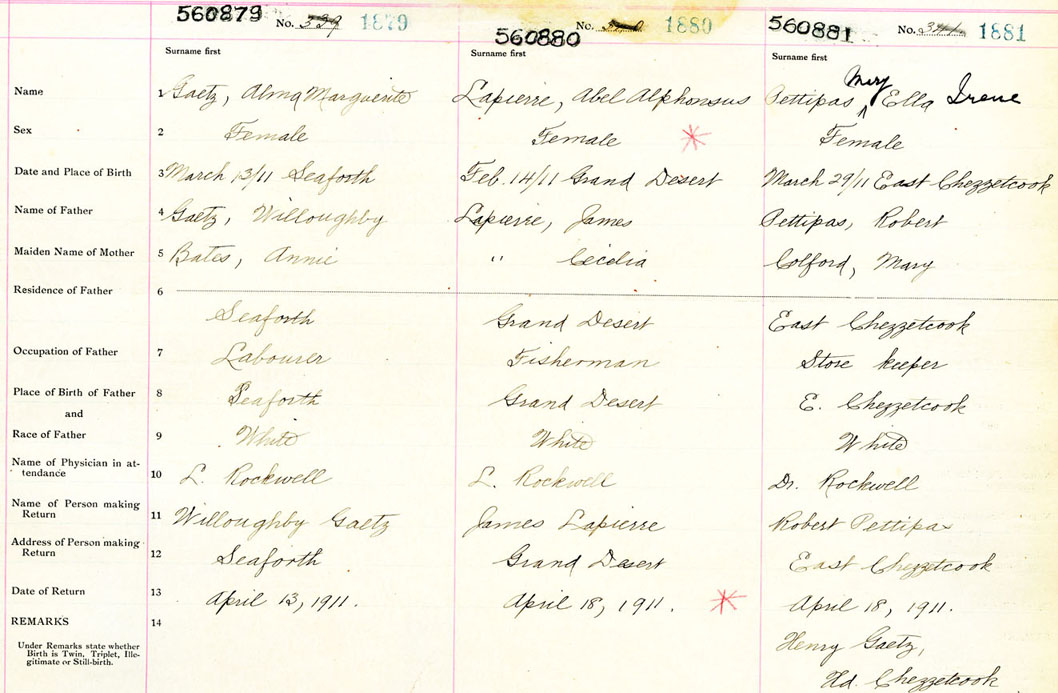 560879 No. 339 1879 560880 No. 1880 560881 No. 341 1881
Surname first Surname first Surname first
Name 1 Gaetz, Alma Marguerite Lapierre, Abel Alphonsus Pettipas, Mary Ella Irene
Sex 2 Female Female Female
Date and Place of Birth 3 March 13/11 Seaforth Feb. 14/11 Grand Desert March 29/11 East Chezzetcook
Name of Father 4 Gaetz, Willoughby Lapierre, James Pettipas, Robert
Maiden Name of Mother 5 Bates, Annie " Cecelia Colford, Mary
Residence of Father 6
Seaforth Grand Desert East Chezzetcook
Occupation of Father 7 Labourer Fisherman Store keeper
Place of Birth of Father 8 Seaforth Grand Desert E. Chezzetcook
and
Race of Father 9 White White White
Name of Physician in at-
tendance 10 L. Rockwell L. Rockwell Dr. Rockwell
Name of Person making
Return 11 Willoughby Gaetz James Lapierre Robert Pettipas
Address of Person making
Return 12 Seaforth Grand Desert East Chezzetcook
Date of Return 13 April 13, 1911. April 18, 1911. April 18, 1911.
REMARKS 14
Under Remarks state whether Henry Gaetz,
Birth is Twin, Triplet, Ille-
gitimate or Still-birth.
Hd. Chezzetcook